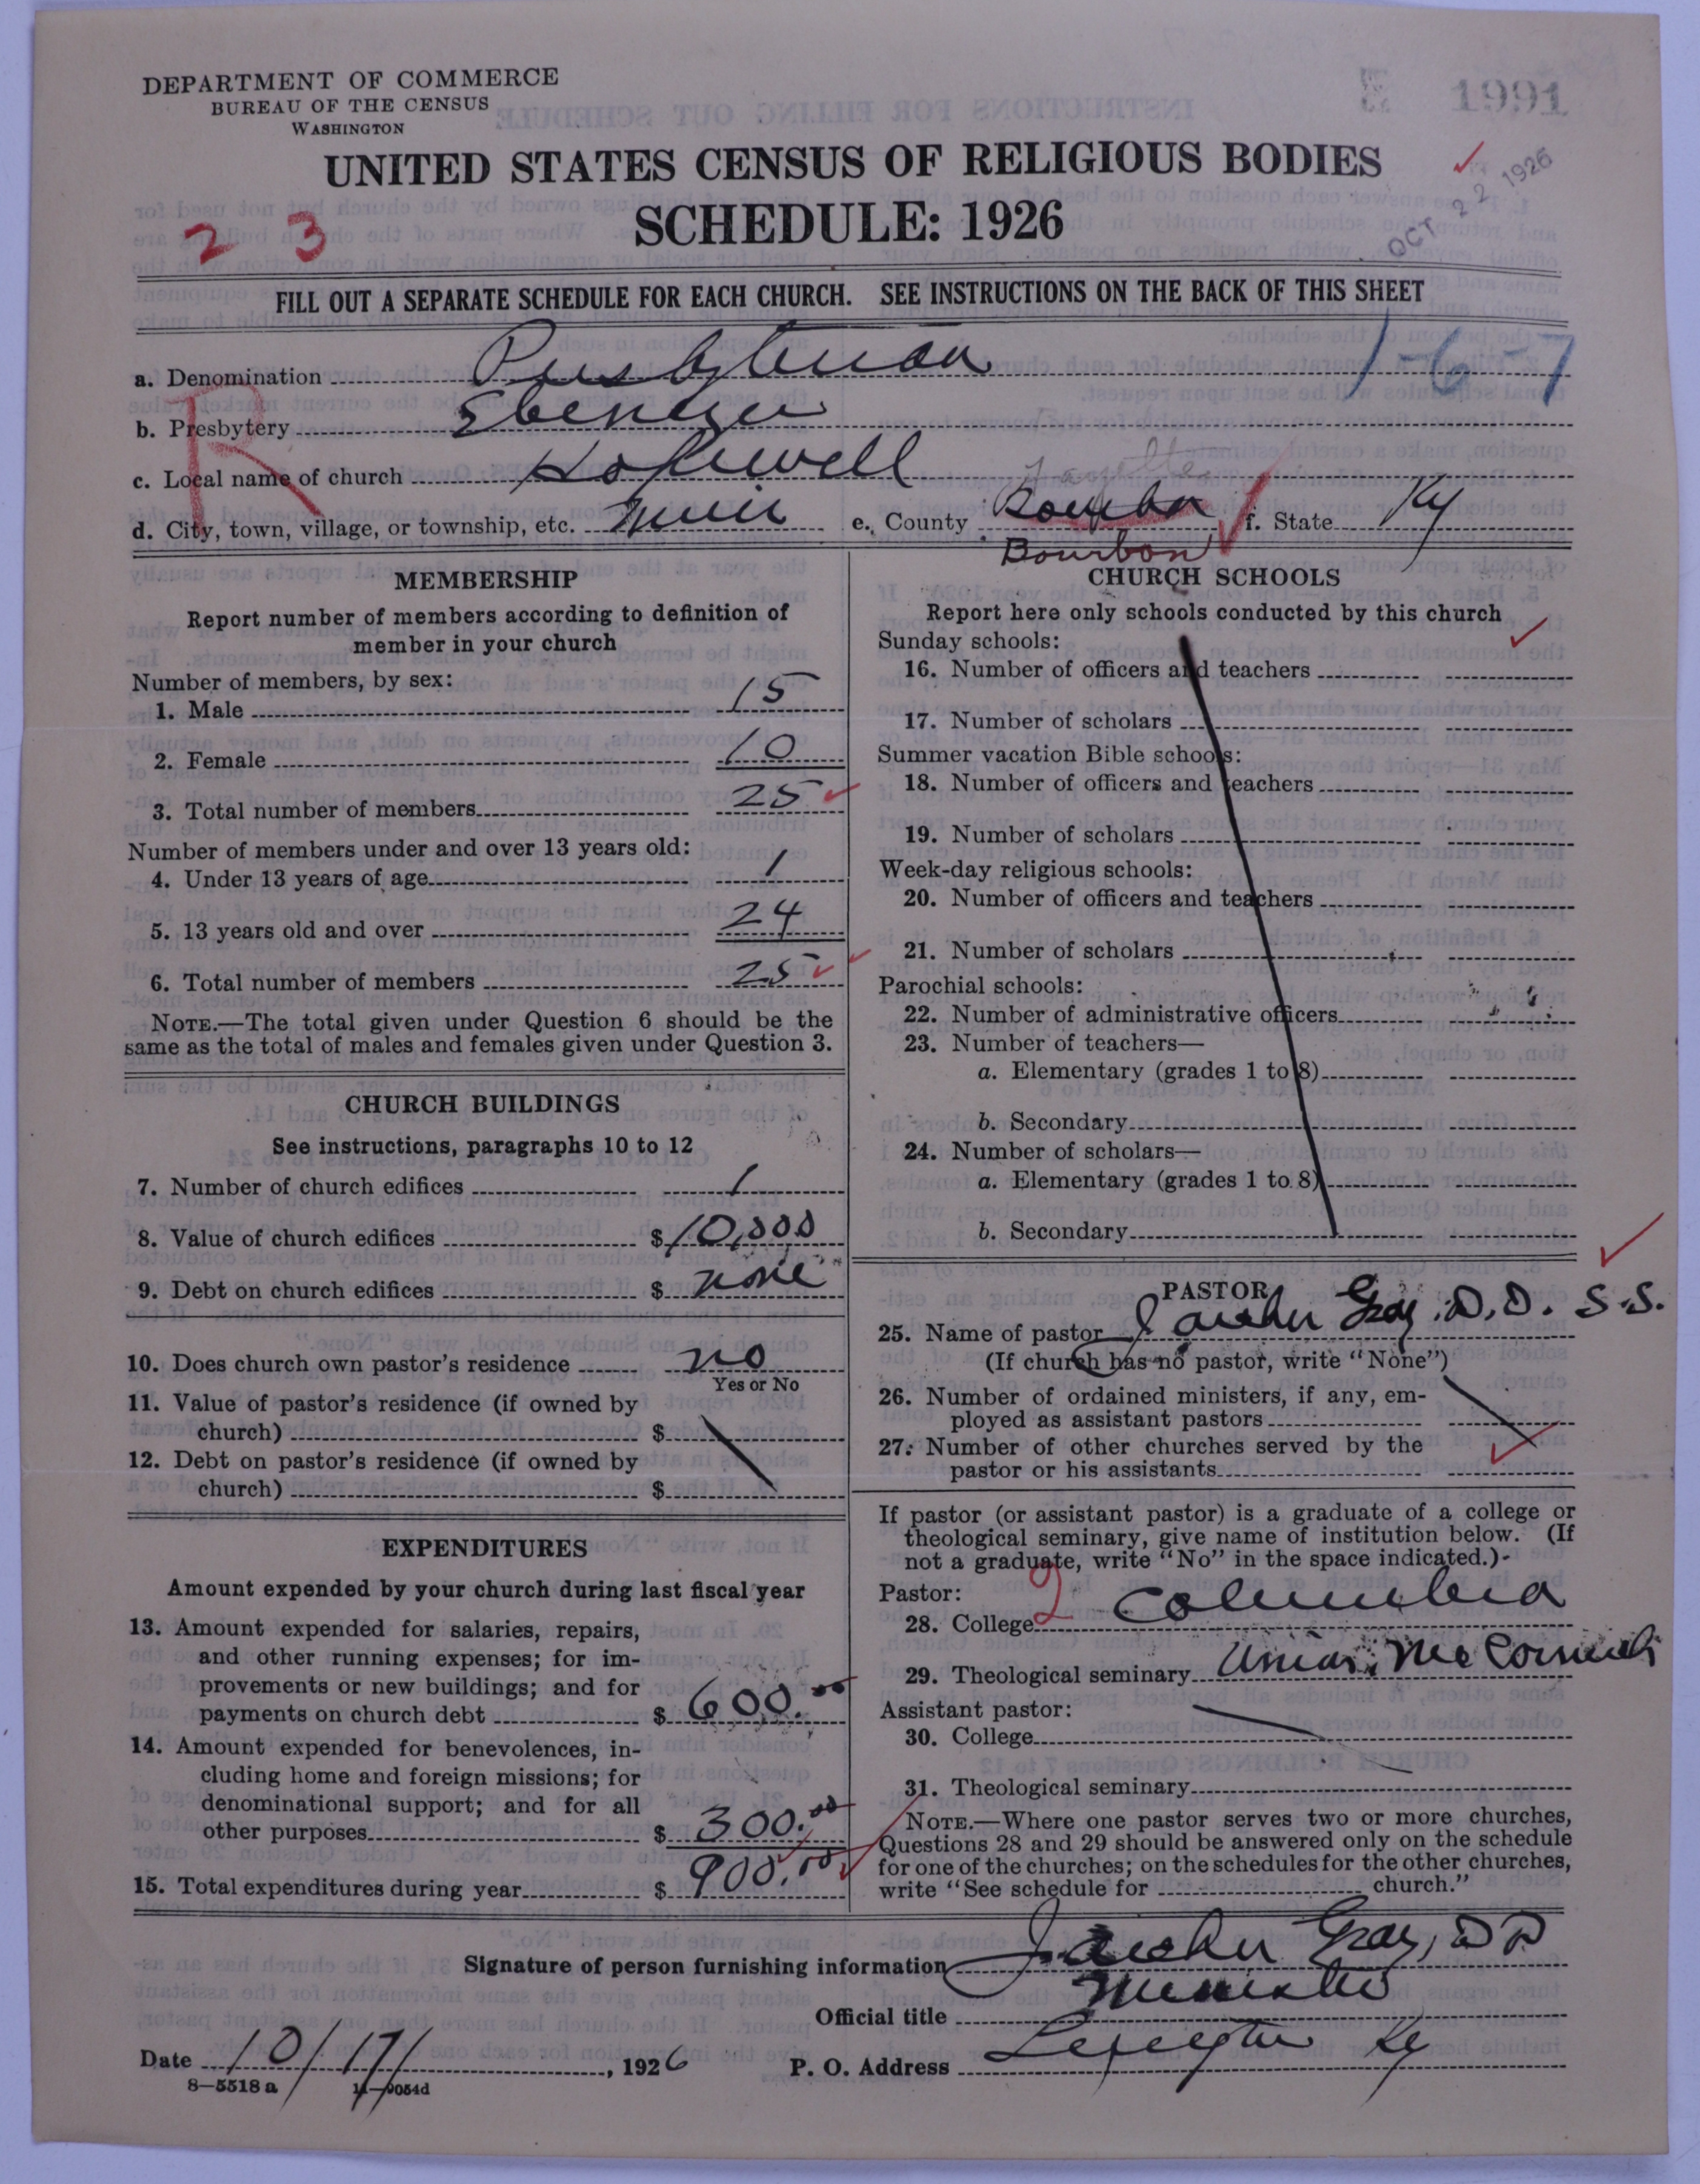 DEPARTMENT OF COMMERCE
BUREAU OF THE CENSUS
WASHINGTON
1991
UNITED STATES CENSUS OF RELIGIOUS BODIES
SCHEDULE: 1926
OCT 22 1926
2 3
FILL OUT A SEPARATE SCHEDULE FOR EACH CHURCH. SEE INSTRUCTIONS ON THE BACK OF THIS SHEET
1-6-7
R
a. Denomination Presbyterian
b. Presbytery Ebenezer
c. Local name of church Hopewell
Fayette
d. City, town, village, or township, etc. Muir e. County Bourbon f. State Ky
Bourbon
MEMBERSHIP
Report number of members according to definition of
member in your church
Number of members, by sex:
1. Male 15
2. Female 10
3. Total number of members 25
Number of members under and over 13 years old:
4. Under 13 years of age 1
5. 13 years old and over 24
6. Total number of members 25
NOTE.—The total given under Question 6 should be the
same as the total of males and females given under Question 3.
CHURCH BUILDINGS
See instructions, paragraphs 10 to 12
7. Number of church edifices 1
8. Value of church edifices $ 10,000
9. Debt on church edifices $ none
10. Does church own pastor's residence no
Yes or No
11. Value of pastor's residence (if owned by
church) $
12. Debt on pastor's residence (if owned by
church) $
EXPENDITURES
Amount expended by your church during last fiscal year
13. Amount expended for salaries, repairs,
and other running expenses; for im-
provements or new buildings; and for
payments on church debt $ 600.00
14. Amount expended for benevolences, in-
cluding home and foreign missions; for
denominational support; and for all
other purposes $ 300.00
15. Total expenditures during year $ 900.00
CHURCH SCHOOLS
Report here only schools conducted by this church
Sunday schools:
16. Number of officers and teachers
17. Number of scholars
Summer vacation Bible schools:
18. Number of officers and teachers
19. Number of scholars
Week-day religious schools:
20. Number of officers and teachers
21. Number of scholars
Parochial schools:
22. Number of administrative officers
23. Number of teachers—
a. Elementary (grades 1 to 8)
b. Secondary
24. Number of scholars—
a. Elementary (grades 1 to 8)
b. Secondary
PASTOR
25. Name of pastor Gray, D.D. S.S.
(If church has no pastor, write "None")
26. Number of ordained ministers, if any, em-
ployed as assistant pastors
27. Number of other churches served by the
pastor or his assistants
If pastor (or assistant pastor) is a graduate of a college or
theological seminary, give name of institution below. (If
not a graduate, write "No" in the space indicated.)
Pastor:
28. College 2 Columbia
29. Theological seminary Union, McCormick
Assistant pastor:
30. College
31. Theological seminary
NOTE.—Where one pastor serves two or more churches,
Questions 28 and 29 should be answered only on the schedule
for one of the churches; on the schedules for the other churches,
write "See schedule for church."
Signature of person furnishing information Gray, DD
Official title Minister
Date 10/17/, 1926 P. O. Address Lexington Ky
8—5518 a 11—9054d